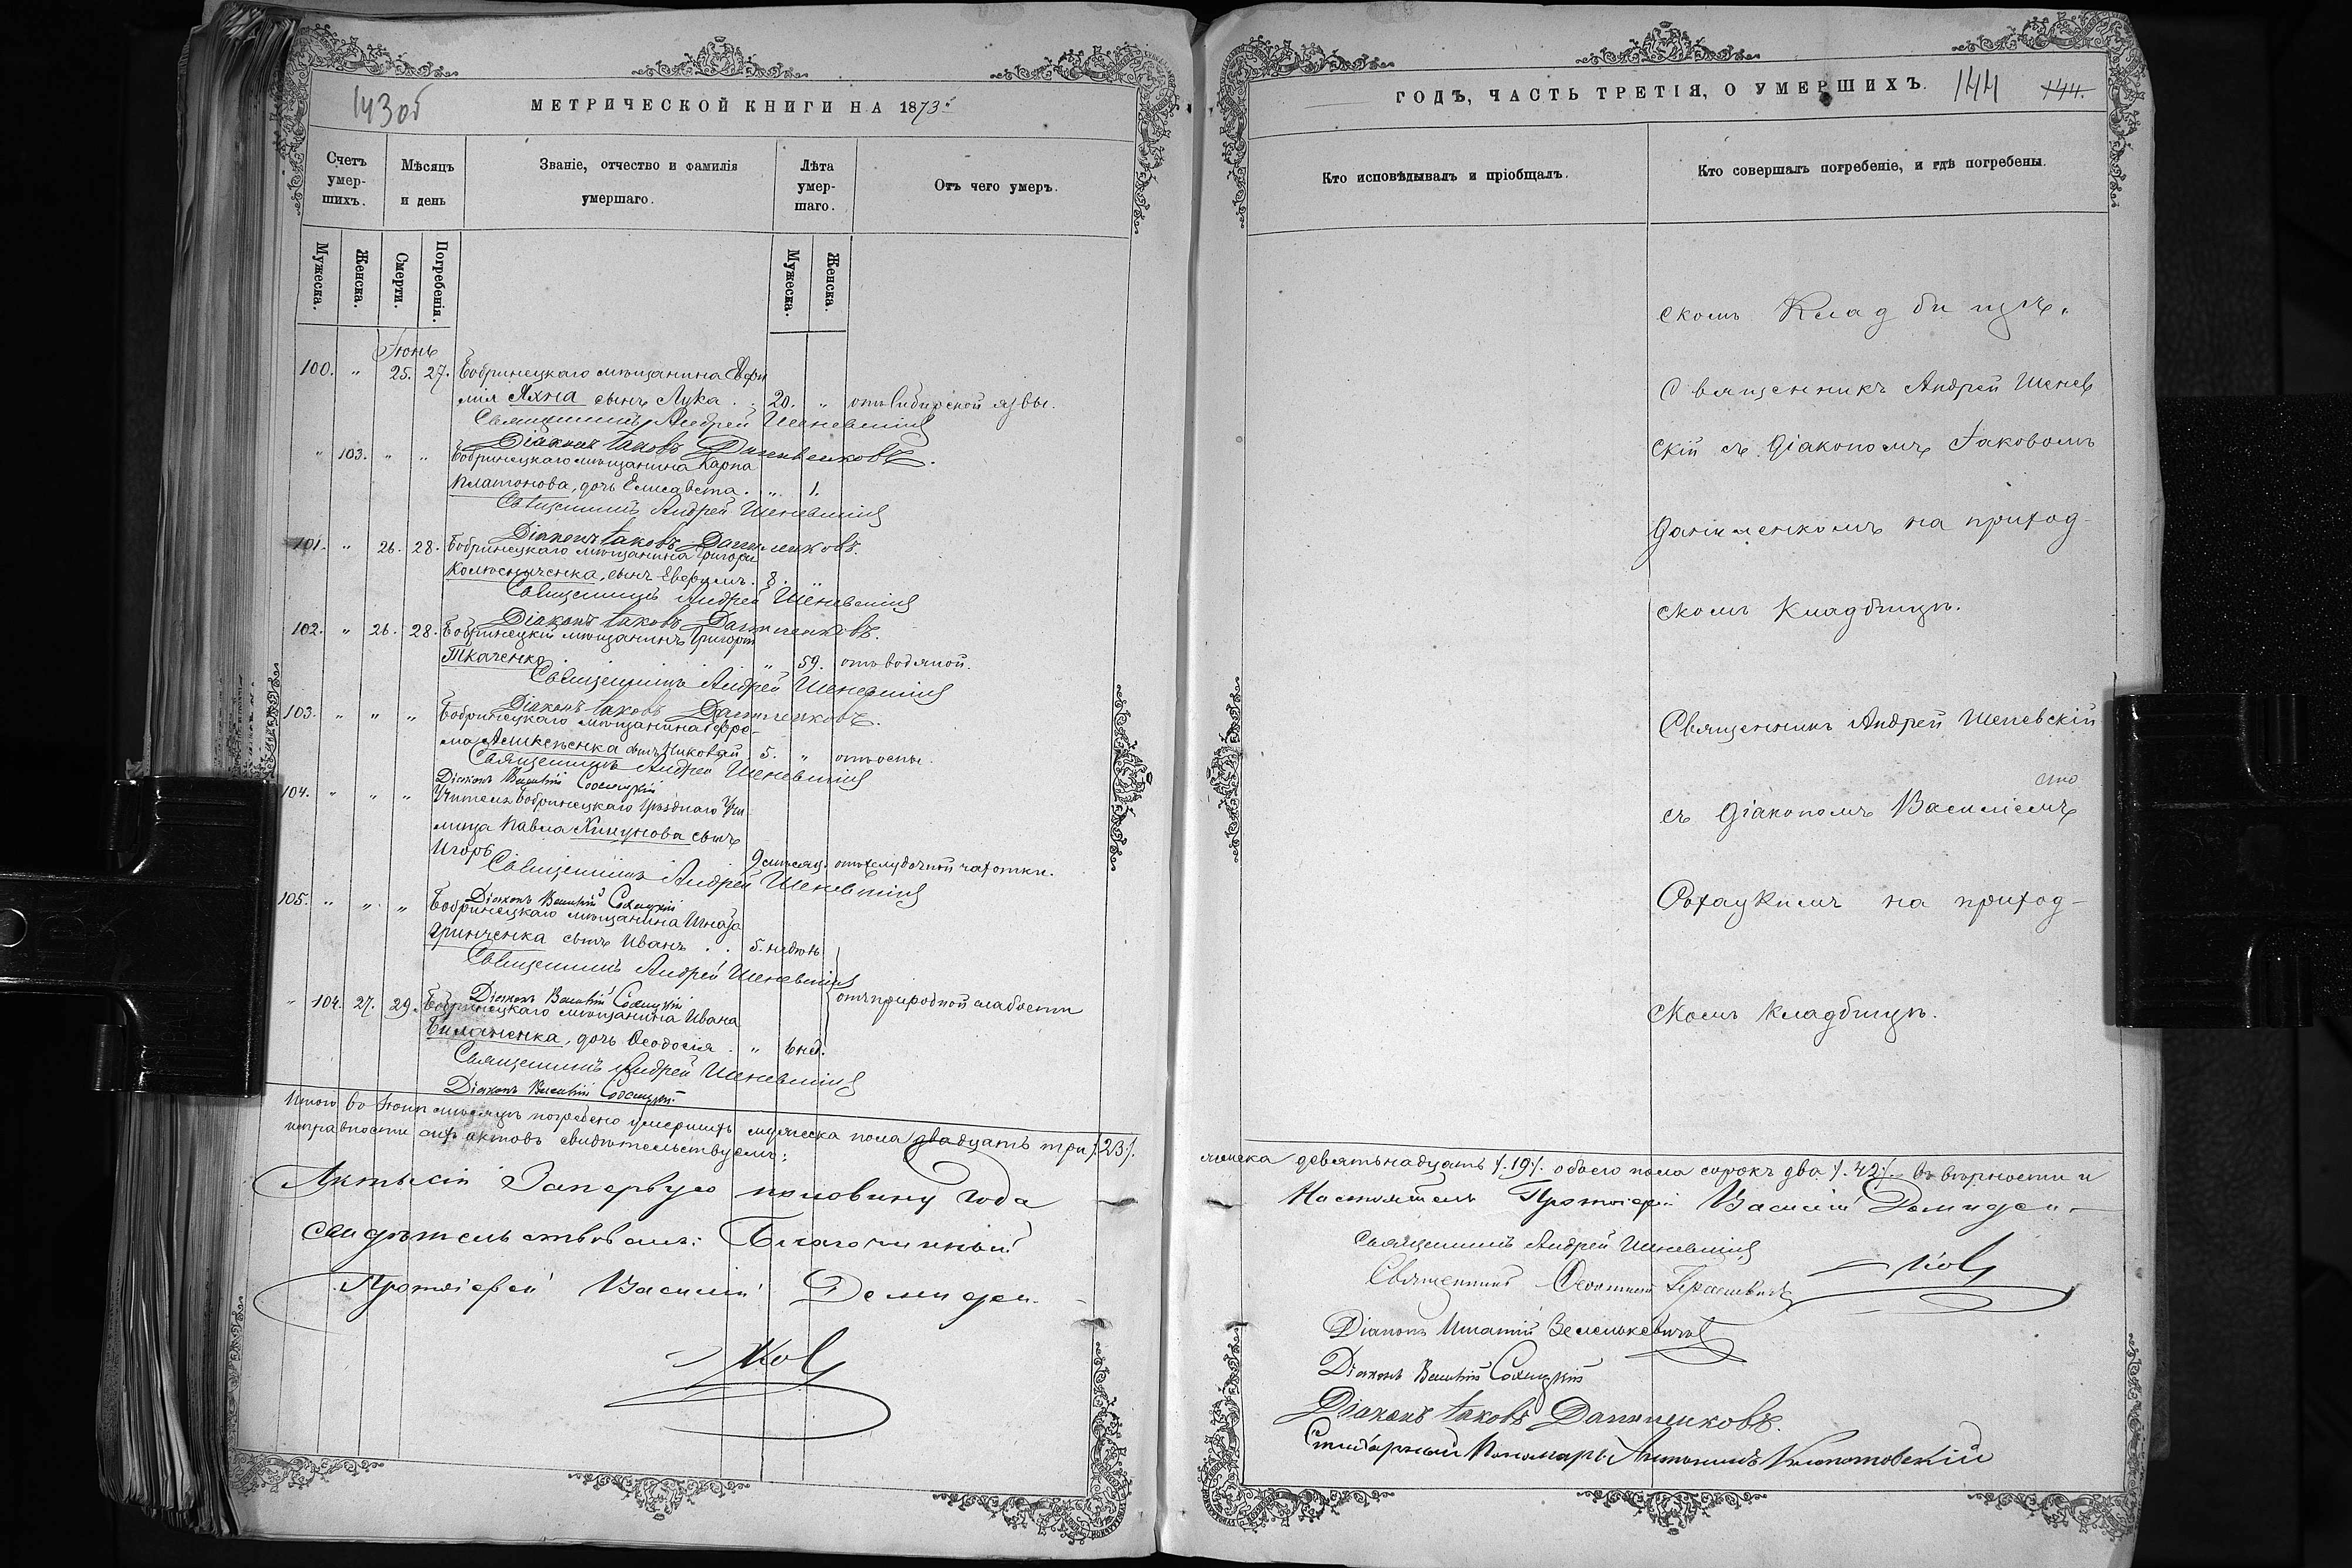 143 об
МЕТРИЧЕСКОЙ КНИГИ НА 1873й
Счетъ умер- шихъ.
Мѣсяцъ и день
Званіе, отчество и фамилія умершаго.
Лѣта умер- шаго.
Отъ чего умеръ.
Мужеска.
Женска.
Смерти.
Погребенія.
Мужеска.
Женска.
Іюнь
100. " 25. 27. Бобринецкаго мѣщанина Евфи
мія Яхна сынъ Лука . . 20. " отъ Сибирской язвы.
Священникъ Андрей Шеневскій
Діаконъ Іаковъ Даниленковъ.
" 103. " " Бобринецкаго мѣщанина Карпа
Платонова, дочь Елисавета . " 1.
Священникъ Андрей Шеневскій
Діаконъ Іаковъ Даниленковъ.
101. " 26. 28. Бобринецкаго мѣщанина Григорія
сынъ Евфимъ. 8. "
Священникъ Андрей Шеневскій
Діаконъ Іаковъ Даниленковъ.
102. " 26. 28. Бобринецкій мѣщанинъ Григорій
Ткаченко . . . " 59. отъ водяной.
Священникъ Андрей Шеневскій
Діаконъ Іаковъ Даниленковъ.
103. " " " Бобринецкаго мѣщанина
сынъ Николай 5. " отъ оспы.
Священникъ Андрей Шеневскій
Діаконъ
104. " " " Учителя Бобринецкаго Уѣзднаго Учи
лища Павла сынъ
Игорь 9 мѣсяц. отъ желудочной чахотки.
Священникъ Андрей Шеневскій
Діаконъ
105. " " " Бобринецкаго мѣщанина Игната
Гринченка сынъ Иванъ . . 5. недѣль
Священникъ Андрей Шеневскій
Діаконъ
отъ природной слабости
" 104. 27. 29. Бобринецкаго мѣщанина Ивана
дочь Ѳеодосія . " 6 нед.
Священникъ Андрей Шеневскій
Діаконъ
Итого во Іюнѣ мѣсяцѣ погребено умершихъ мужеска пола двадцать три /.23/.
исправности сихъ актовъ свидѣтельствуемъ:
Акты сіи за первую половину года
свидѣтельствовалъ: Благочинный
Протоіерей Василій Демиден-
ковъ
ГОДЪ, ЧАСТЬ ТРЕТІЯ, О УМЕРШИХЪ.
144
144.
Кто исповѣдывалъ и пріобщалъ.
Кто совершалъ погребеніе, и гдѣ погребены.
скомъ Кладбищѣ.
Священникъ Андрей Шенев
скій съ Діакономъ Іаковомъ
Даниленкомъ на приход
скомъ Кладбищѣ.
Священникъ Андрей Шеневскій
съ Діакономъ
на приход-
скомъ кладбищѣ.
женска девятьнадцать /.19/. обоего пола сорокъ два /.42/. въ вѣрности и
Настоятель Протоіерей Василій Демиден-
ковъ
Священникъ Андрей Шеневскій
Священникъ
Діаконъ Игнатій Зеленкевичъ
Діаконъ
Діаконъ Іаковъ Даниленковъ.
Пономарь